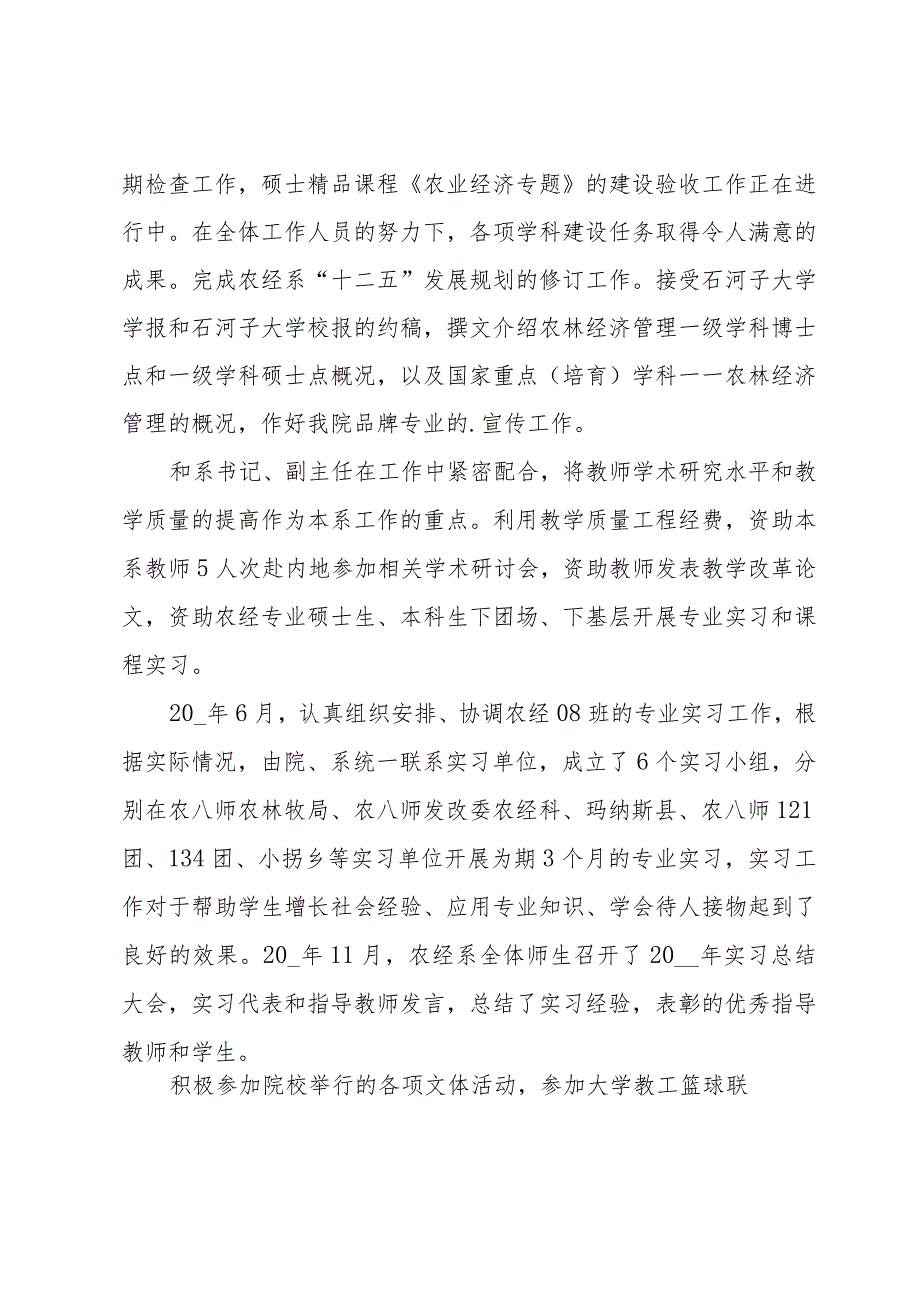 期检查工作，硕士精品课程《农业经济专题》的建设验收工作正在进
行中。在全体工作人员的努力下，各项学科建设任务取得令人满意的
成果。完成农经系“十二五”发展规划的修订工作。接受石河子大学
学报和石河子大学校报的约稿，撰文介绍农林经济管理一级学科博士
点和一级学科硕士点概况，以及国家重点（培育）学科一一农林经济
管理的概况，作好我院品牌专业的.宣传工作。
和系书记、副主任在工作中紧密配合，将教师学术研究水平和教
学质量的提高作为本系工作的重点。利用教学质量工程经费，资助本
系教师5人次赴内地参加相关学术研讨会，资助教师发表教学改革论
文，资助农经专业硕士生、本科生下团场、下基层开展专业实习和课
程实习。
20_年6月，认真组织安排、协调农经08班的专业实习工作，根
据实际情况，由院、系统一联系实习单位，成立了6个实习小组，分
别在农八师农林牧局、农八师发改委农经科、玛纳斯县、农八师121
团、134团、小拐乡等实习单位开展为期3个月的专业实习，实习工
作对于帮助学生增长社会经验、应用专业知识、学会待人接物起到了
良好的效果。20_年11月，农经系全体师生召开了20__年实习总结
大会，实习代表和指导教师发言，总结了实习经验，表彰的优秀指导
教师和学生。
积极参加院校举行的各项文体活动，参加大学教工篮球联